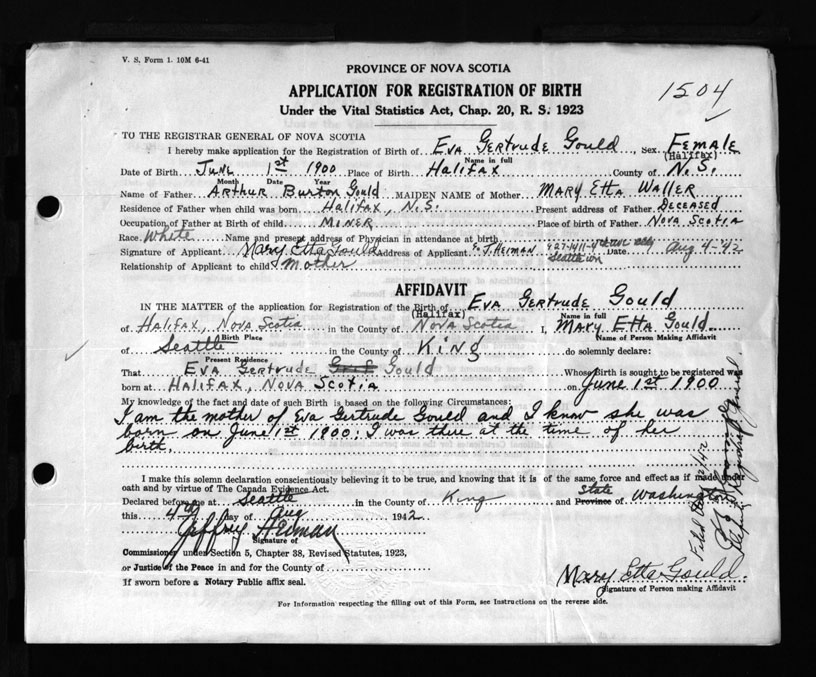 V. S. Form 1. 10M 6-41
PROVINCE OF NOVA SCOTIA
APPLICATION FOR REGISTRATION OF BIRTH
Under the Vital Statistics Act, Chap. 20, R. S. 1923
1504
TO THE REGISTRAR GENERAL OF NOVA SCOTIA
I hereby make application for the Registration of Birth of Eva Gertrude Gould, Sex Female
Name in full (Halifax)
Date of Birth June 1st 1900 Place of Birth Halifax County of N.S.
Month Date Year
Name of Father Arthur Burton Gould MAIDEN NAME of Mother Mary Etta Waller
Residence of Father when child was born Halifax, N.S. Present address of Father Deceased
Occupation of Father at Birth of child Miner Place of birth of Father Nova Scotia
Race White Name and present address of Physician in attendance at birth
Signature of Applicant Mary Etta Gould Address of Applicant Seattle Date Aug 4-42
Relationship of Applicant to child Mother
AFFIDAVIT
IN THE MATTER of the application for Registration of the Birth of Eva Gertrude Gould
(Halifax) Name in full
of Halifax, Nova Scotia in the County of Nova Scotia I, Mary Etta Gould
Birth Place Name of Person Making Affidavit
of Seattle in the County of King do solemnly declare:
Present Residence
That Eva Gertrude Gould Whose Birth is sought to be registered was
born at Halifax, Nova Scotia on June 1st 1900
My knowledge of the fact and date of such Birth is based on the following Circumstances:
I am the mother of Eva Gertrude Gould and I know she was
born on June 1st 1900; I was there at the time of her
birth.
I make this solemn declaration conscientiously believing it to be true, and knowing that it is of the same force and effect as if made under
oath and by virtue of The Canada Evidence Act.
State
Declared before me at Seattle in the County of King and Province of Washington
this 4th day of Aug 1942
Jeffrey Heiman
Signature of
Commissioner under Section 5, Chapter 38, Revised Statutes, 1923,
or Justice of the Peace in and for the County of
If sworn before a Notary Public affix seal.
Mary Etta Gould
Signature of Person making Affidavit
For Information respecting the filling out of this Form, see Instructions on the reverse side.
Filed